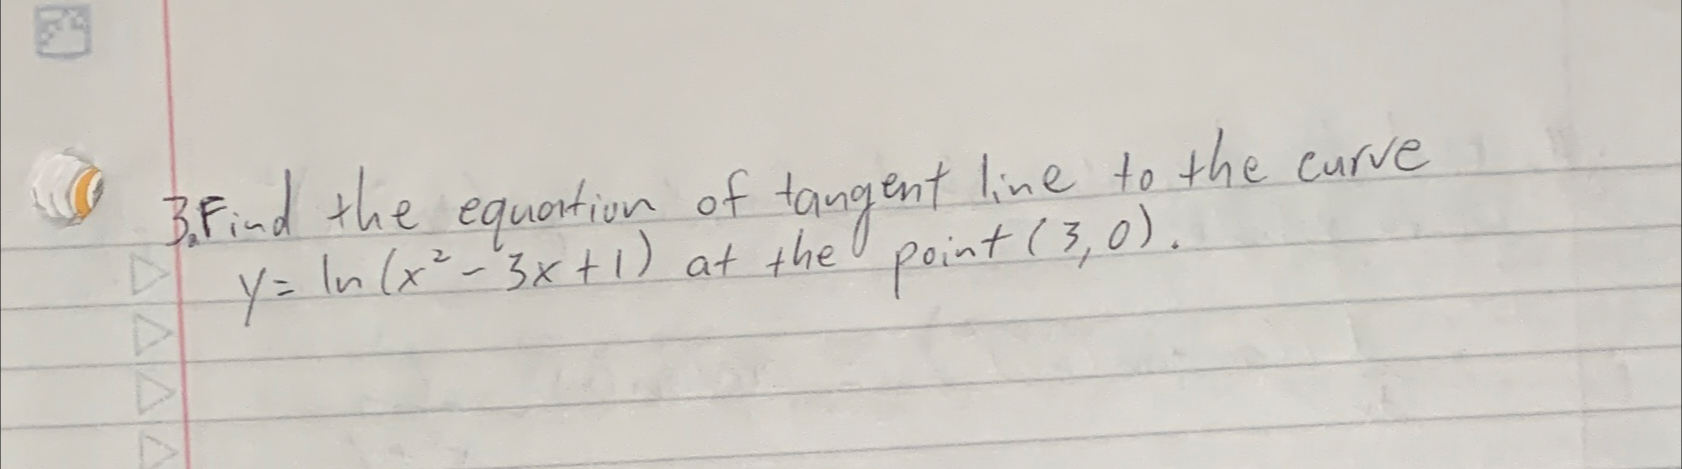 3. Find the equation of tangent line to the curve
y = ln (x² - 3x + 1) at the point (3, 0).